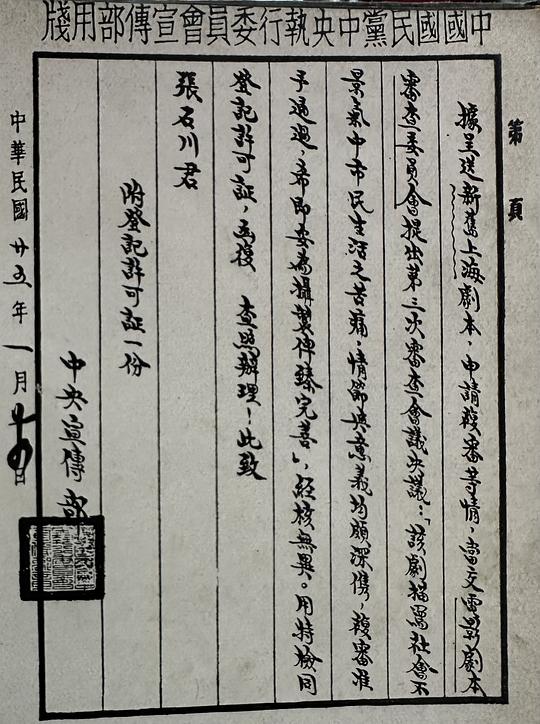 中國國民黨中央執行委員會宣傳部用牋
第 頁
據呈送新舊上海劇本，申請複審等情，當交電影劇本
審查委員會提出第三次審查會議決議：「該劇描寫社會不
景氣中市民生活之苦痛，情節與意義均頗深儁，複審准
予通過，希即妥為攝製俾臻完善」，經核無異。用特檢同
登記許可証，函復 查照辦理！此致
張石川君
附登記許可証一份
中央宣傳部
中華民國廿五年一月十四日